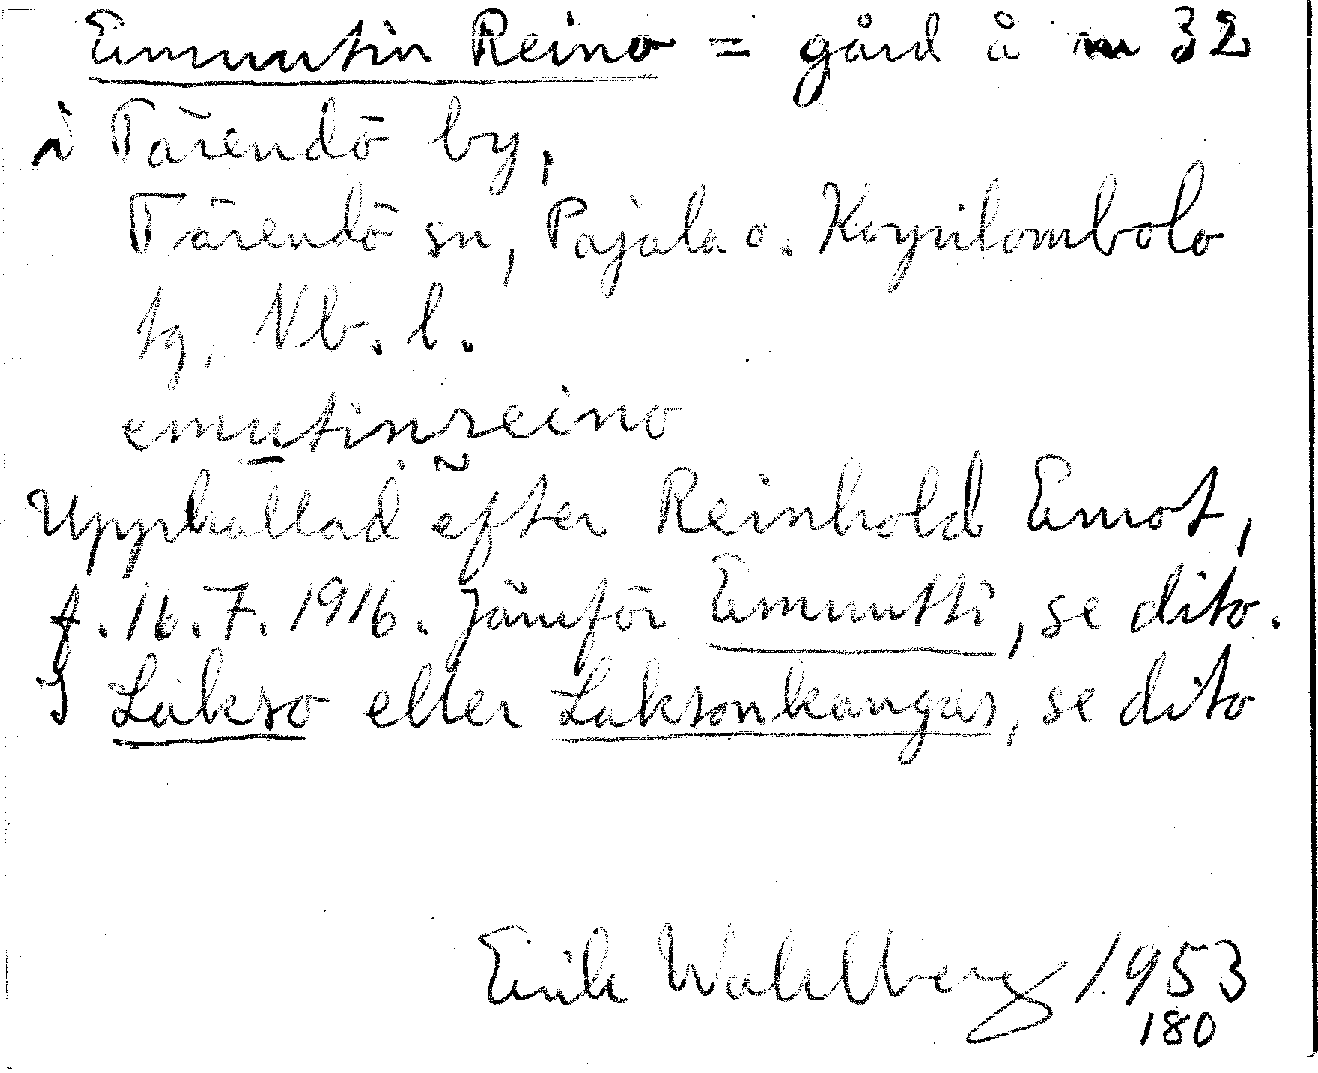 Emuutin Reino = gård å nr 32
i Tärendö by,
Tärendö sn, Pajala o. Korpilombolo
tg, Nb. l.
emutinreino
Uppkallad efter Reinhold Emot,
f. 16.7.1916. Jämför Emuutti, se dito.
I Lakso eller Laksonkangas, se dito
Erik Wahlberg 1953
180